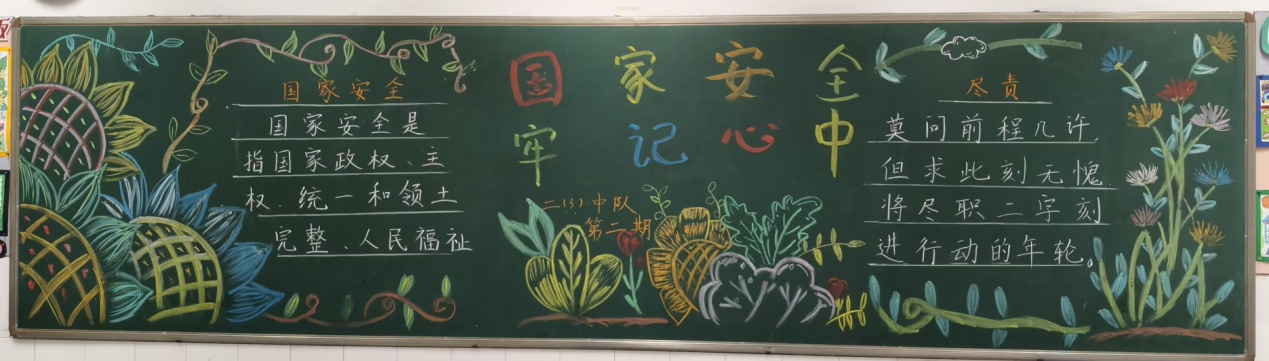 国家安全
国家安全是
指国家政权、主
权、统一和领土
完整、人民福祉
国家安全
牢记心中
二(3)中队
第二期
尽责
莫问前程几许,
但求此刻无愧.
将尽职二字刻
进行动的年轮。